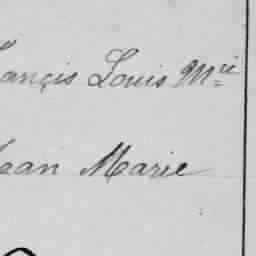 ançis Louis M^rie
ean Marie